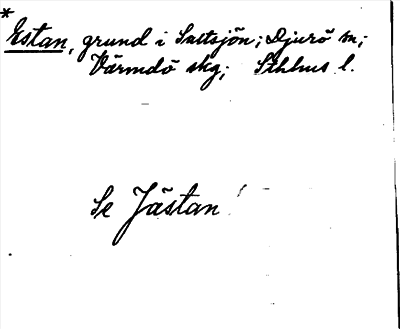 *
Estan, grund i Saltsjön; Djurö sn;
Värmdö skg; Sthlms l.
Se Jästan!